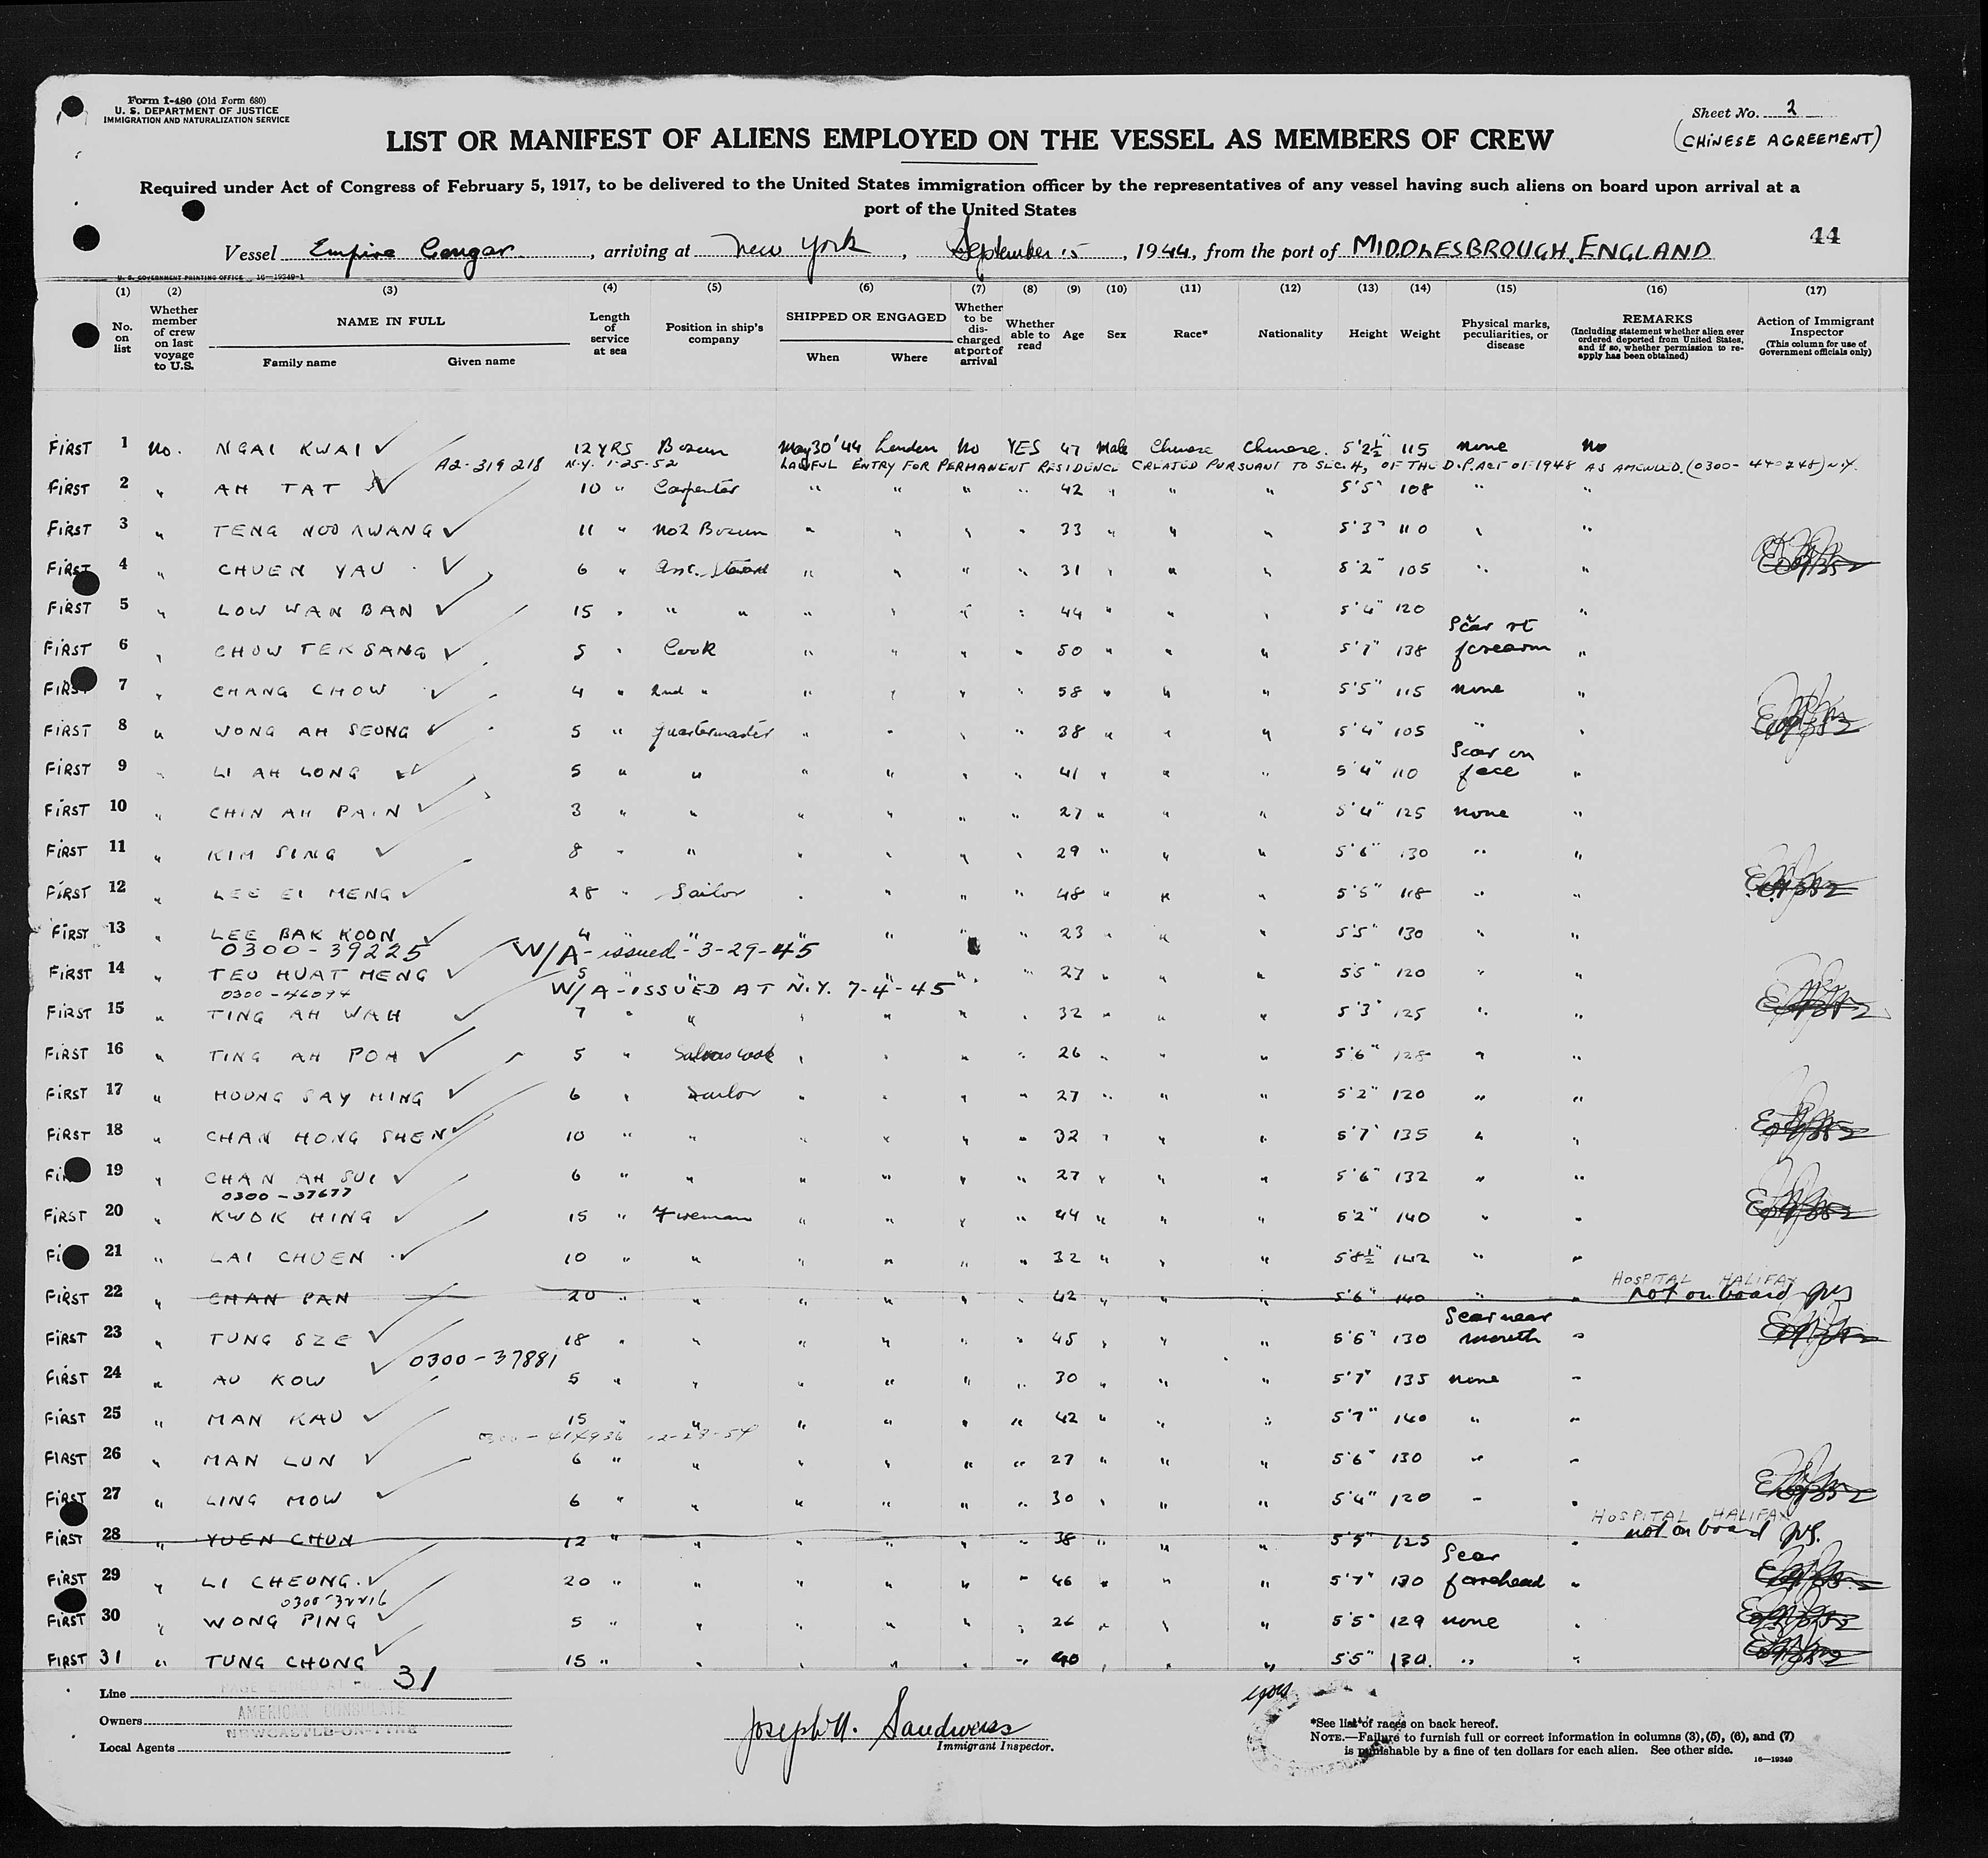 Form I-480 (Old Form 680)
U. S. DEPARTMENT OF JUSTICE
IMMIGRATION AND NATURALIZATION SERVICE
Sheet No. 2
(CHINESE AGREEMENT)
LIST OR MANIFEST OF ALIENS EMPLOYED ON THE VESSEL AS MEMBERS OF CREW
Required under Act of Congress of February 5, 1917, to be delivered to the United States immigration officer by the representatives of any vessel having such aliens on board upon arrival at a
port of the United States
44
Vessel Empire Cougar, arriving at New York, September 15, 1944, from the port of MIDDLESBROUGH, ENGLAND
U. S. GOVERNMENT PRINTING OFFICE 16—19349-1
(1) (2) (3) (4) (5) (6) (7) (8) (9) (10) (11) (12) (13) (14) (15) (16) (17)
No. on list
Whether member of crew on last voyage to U.S.
NAME IN FULL
Family name Given name
Length of service at sea
Position in ship's company
SHIPPED OR ENGAGED
When Where
Whether to be discharged at port of arrival
Whether able to read
Age Sex Race* Nationality Height Weight
Physical marks, peculiarities, or disease
REMARKS
(Including statement whether alien ever ordered deported from United States, and if so, whether permission to reapply has been obtained)
Action of Immigrant Inspector
(This column for use of Government officials only)
FIRST 1 No. NGAI KWAI ✓ 12 YRS Bosun May 30 '44 London No YES 47 Male Chinese Chinese. 5'2½" 115 none No
A2-319 218 N.Y. 1-25-52 LAWFUL ENTRY FOR PERMANENT RESIDENCE CREATED PURSUANT TO SEC. 4, OF THE D.P. ACT OF 1948 AS AMENDED. (0300-440248) N.Y.
FIRST 2 " AH TAT ✓ 10 " Carpenter " " " " 42 " " " 5'5" 108 " "
FIRST 3 " TENG NOO ✓ 11 " No 2 Bosun " " " " 33 " " " 5'3" 110 " "
FIRST 4 " CHUEN YAU ✓ 6 " Asst. Steward " " " " 31 " " " 5'2" 105 " "
FIRST 5 " LOW WAN BAN ✓ 15 " " " " " " " 44 " " " 5'4" 120 "
FIRST 6 " CHOW TEK SANG ✓ 5 " Cook " " " " 50 " " " 5'7" 138 Scar rt forearm "
FIRST 7 " CHANG CHOW ✓ 4 " 2nd " " " " " 58 " " " 5'5" 115 none "
FIRST 8 " WONG AH SEONG ✓ 5 " Quartermaster " " " " 38 " " " 5'4" 105 " "
FIRST 9 " LI AH LONG ✓ 5 " " " " " " 41 " " " 5'4" 110 Scar on face "
FIRST 10 " CHIN AH PAIN ✓ 3 " " " " " " 27 " " " 5'4" 125 none "
FIRST 11 " KIM SING ✓ 8 " " " " " " 29 " " " 5'6" 130 " "
FIRST 12 " LEE EI MENG ✓ 28 " Sailor " " " " 48 " " " 5'5" 118 " "
FIRST 13 " LEE BAK KOON ✓ 4 " " " " " 23 " " " 5'5" 130 " "
0300-39225 W/A-issued-3-29-45
FIRST 14 " TEO HUAT MENG ✓ 5 " " " " " " 27 " " " 5'5" 120 " "
0300-46094 W/A-ISSUED AT N.Y. 7-4-45
FIRST 15 " TING AH WAH ✓ 7 " " " " " " 32 " " " 5'3" 125 " "
FIRST 16 " TING AH POH ✓ 5 " cook " " " " 26 " " " 5'6" 128 " "
FIRST 17 " HOUNG SAY HING ✓ 6 " Sailor " " " " 27 " " " 5'2" 120 " "
FIRST 18 " CHAN HONG SHEN ✓ 10 " " " " " " 32 " " " 5'7" 135 " "
FIRST 19 " CHAN AH SUI ✓ 6 " " " " " " 27 " " " 5'6" 132 " "
0300-37677
FIRST 20 " KWOK HING ✓ 15 " Fireman " " " " 44 " " " 5'2" 140 " "
FIRST 21 " LAI CHUEN ✓ 10 " " " " " " 32 " " " 5'8½" 142 " "
HOSPITAL HALIFAX
FIRST 22 " CHAN PAN 20 " " " " " " 42 " " " 5'6" 140 " " not on board
FIRST 23 " TUNG SZE ✓ 18 " " " " " " 45 " " " 5'6" 130 Scar near mouth "
✓ 0300-37881
FIRST 24 " AU KOW 5 " " " " " " 30 " " " 5'7" 135 none "
FIRST 25 " MAN KAU ✓ 15 " " " " " " 42 " " " 5'7" 140 " "
FIRST 26 " MAN LUN ✓ 6 " " " " " " 27 " " " 5'6" 130 " "
FIRST 27 " LING MOW ✓ 6 " " " " " " 30 " " " 5'4" 120 " "
HOSPITAL HALIFAX
FIRST 28 " YUEN CHUN 12 " " " " " " 38 " " " 5'5" 125 " not on board
FIRST 29 " LI CHEONG. ✓ 20 " " " " " " 46 " " " 5'7" 130 Scar forehead "
FIRST 30 " WONG PING ✓ 5 " " " " " " 26 " " " 5'5" 129 none "
FIRST 31 " TUNG CHONG ✓ 15 " " " " " " 40 " " " 5'5" 130. " "
31
Line
AMERICAN CONSULATE
Owners
NEWCASTLE-ON-TYNE
Local Agents
Immigrant Inspector.
*See list of races on back hereof.
NOTE.—Failure to furnish full or correct information in columns (3), (5), (6), and (7)
is punishable by a fine of ten dollars for each alien. See other side.
16—19349